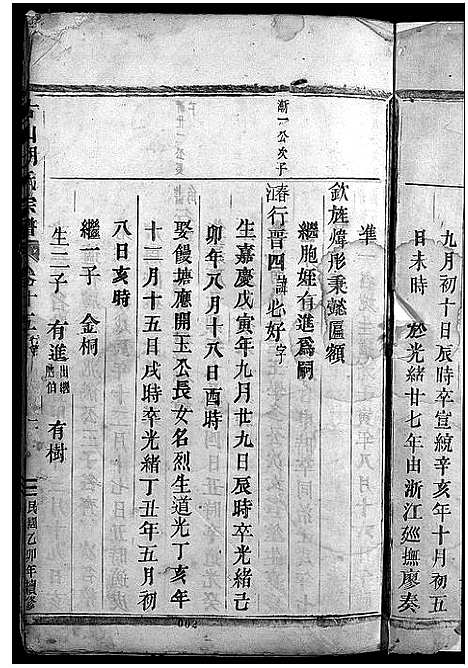 九月初十日辰時卒宣統辛亥年十月初五
日未時 於光緒廿七年由浙江廵撫廖奏
準
欽旌煒彤秉懿匾額
繼胞姪有進爲嗣
漸一公次子
濬行晋四諱必好字
生嘉慶戊寅年九月廿九日辰時卒光緒己
卯年八月十八日酉時
娶饅塘廳開玉公長女名烈生道光丁亥年
十二月十五日戌時卒光緒丁丑年五月初
八日亥時
繼一子 金桐
生二子 有進出繼胞伯 有樹
山胡氏宗譜 卷十五 行傳 一 民國乙卯年續修
002